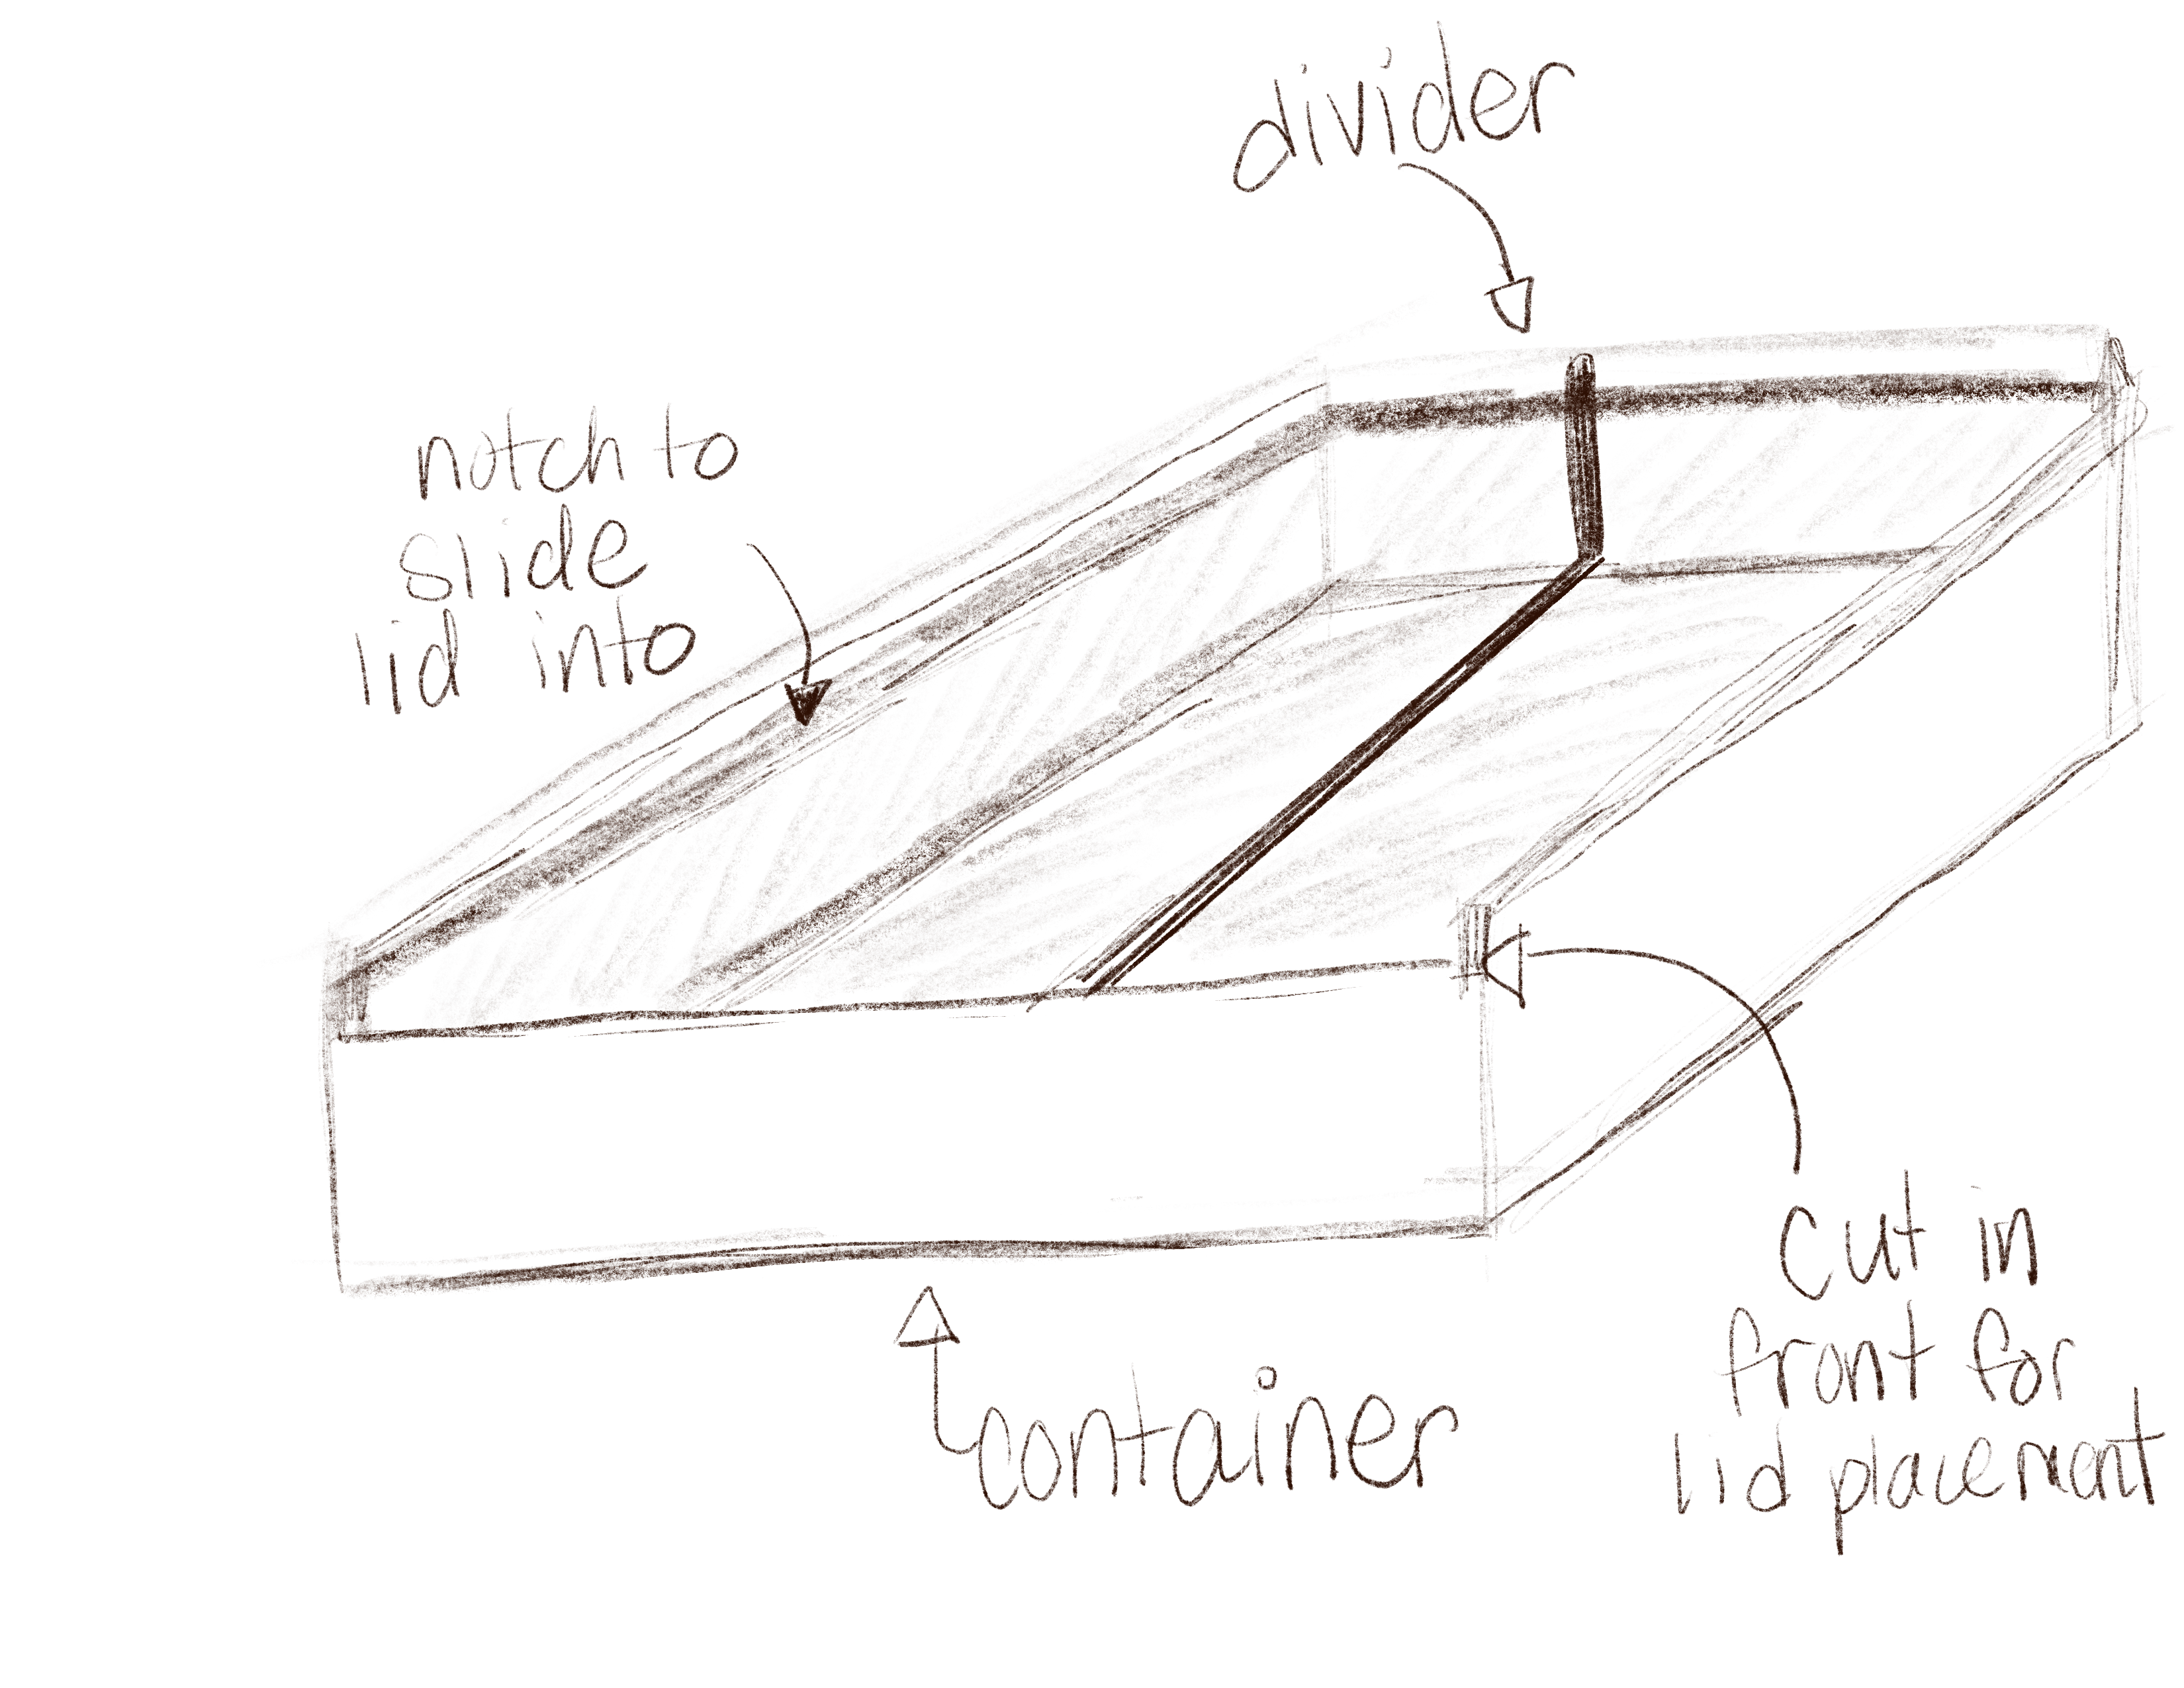 divider
notch to
slide
lid into
cut in
front for
lid placement
container